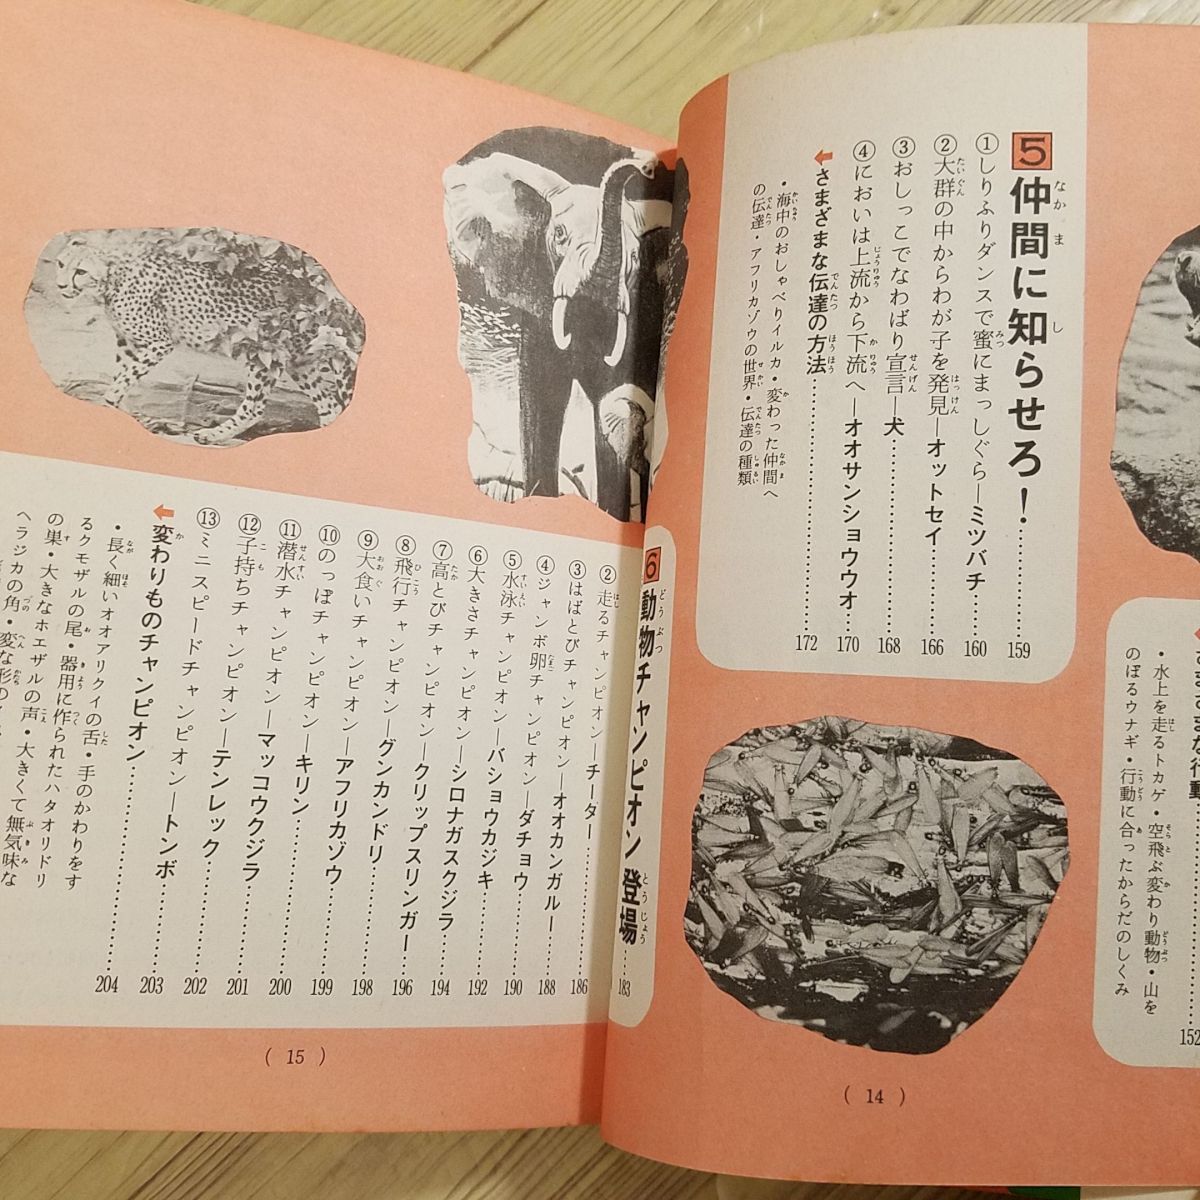 ・水上を走るトカゲ・空飛ぶ変わり動物・山を
のぼるウナギ・行動に合ったからだのしくみ
152
5 仲間に知らせろ！……159
①しりふりダンスで蜜にまっしぐら—ミツバチ……160
②大群の中からわが子を発見—オットセイ……166
③おしっこでなわばり宣言—犬……168
④においは上流から下流へ—オオサンショウウオ……170
さまざまな伝達の方法……172
・海中のおしゃべりイルカ・変わった仲間へ
の伝達・アフリカゾウの世界・伝達の種類
( 14 )
6 動物チャンピオン登場…183
②走るチャンピオン—チーター……186
③はばとびチャンピオン—オオカンガルー……188
④ジャンボ卵チャンピオン—ダチョウ……190
⑤水泳チャンピオン—バショウカジキ……192
⑥大きさチャンピオン—シロナガスクジラ……194
⑦高とびチャンピオン—クリップスリンガー……196
⑧飛行チャンピオン—グンカンドリ……198
⑨大食いチャンピオン—アフリカゾウ……199
⑩のっぽチャンピオン—キリン……200
⑪潜水チャンピオン—マッコウクジラ……201
⑫子持ちチャンピオン—テンレック……202
⑬ミニスピードチャンピオン—トンボ……203
変わりものチャンピオン……204
・長く細いオオアリクイの舌・手のかわりをす
るクモザルの尾・器用に作られたハタオリドリ
の巣・大きなホエザルの声・大きくて無気味な
ヘラジカの角・変な形の
( 15 )